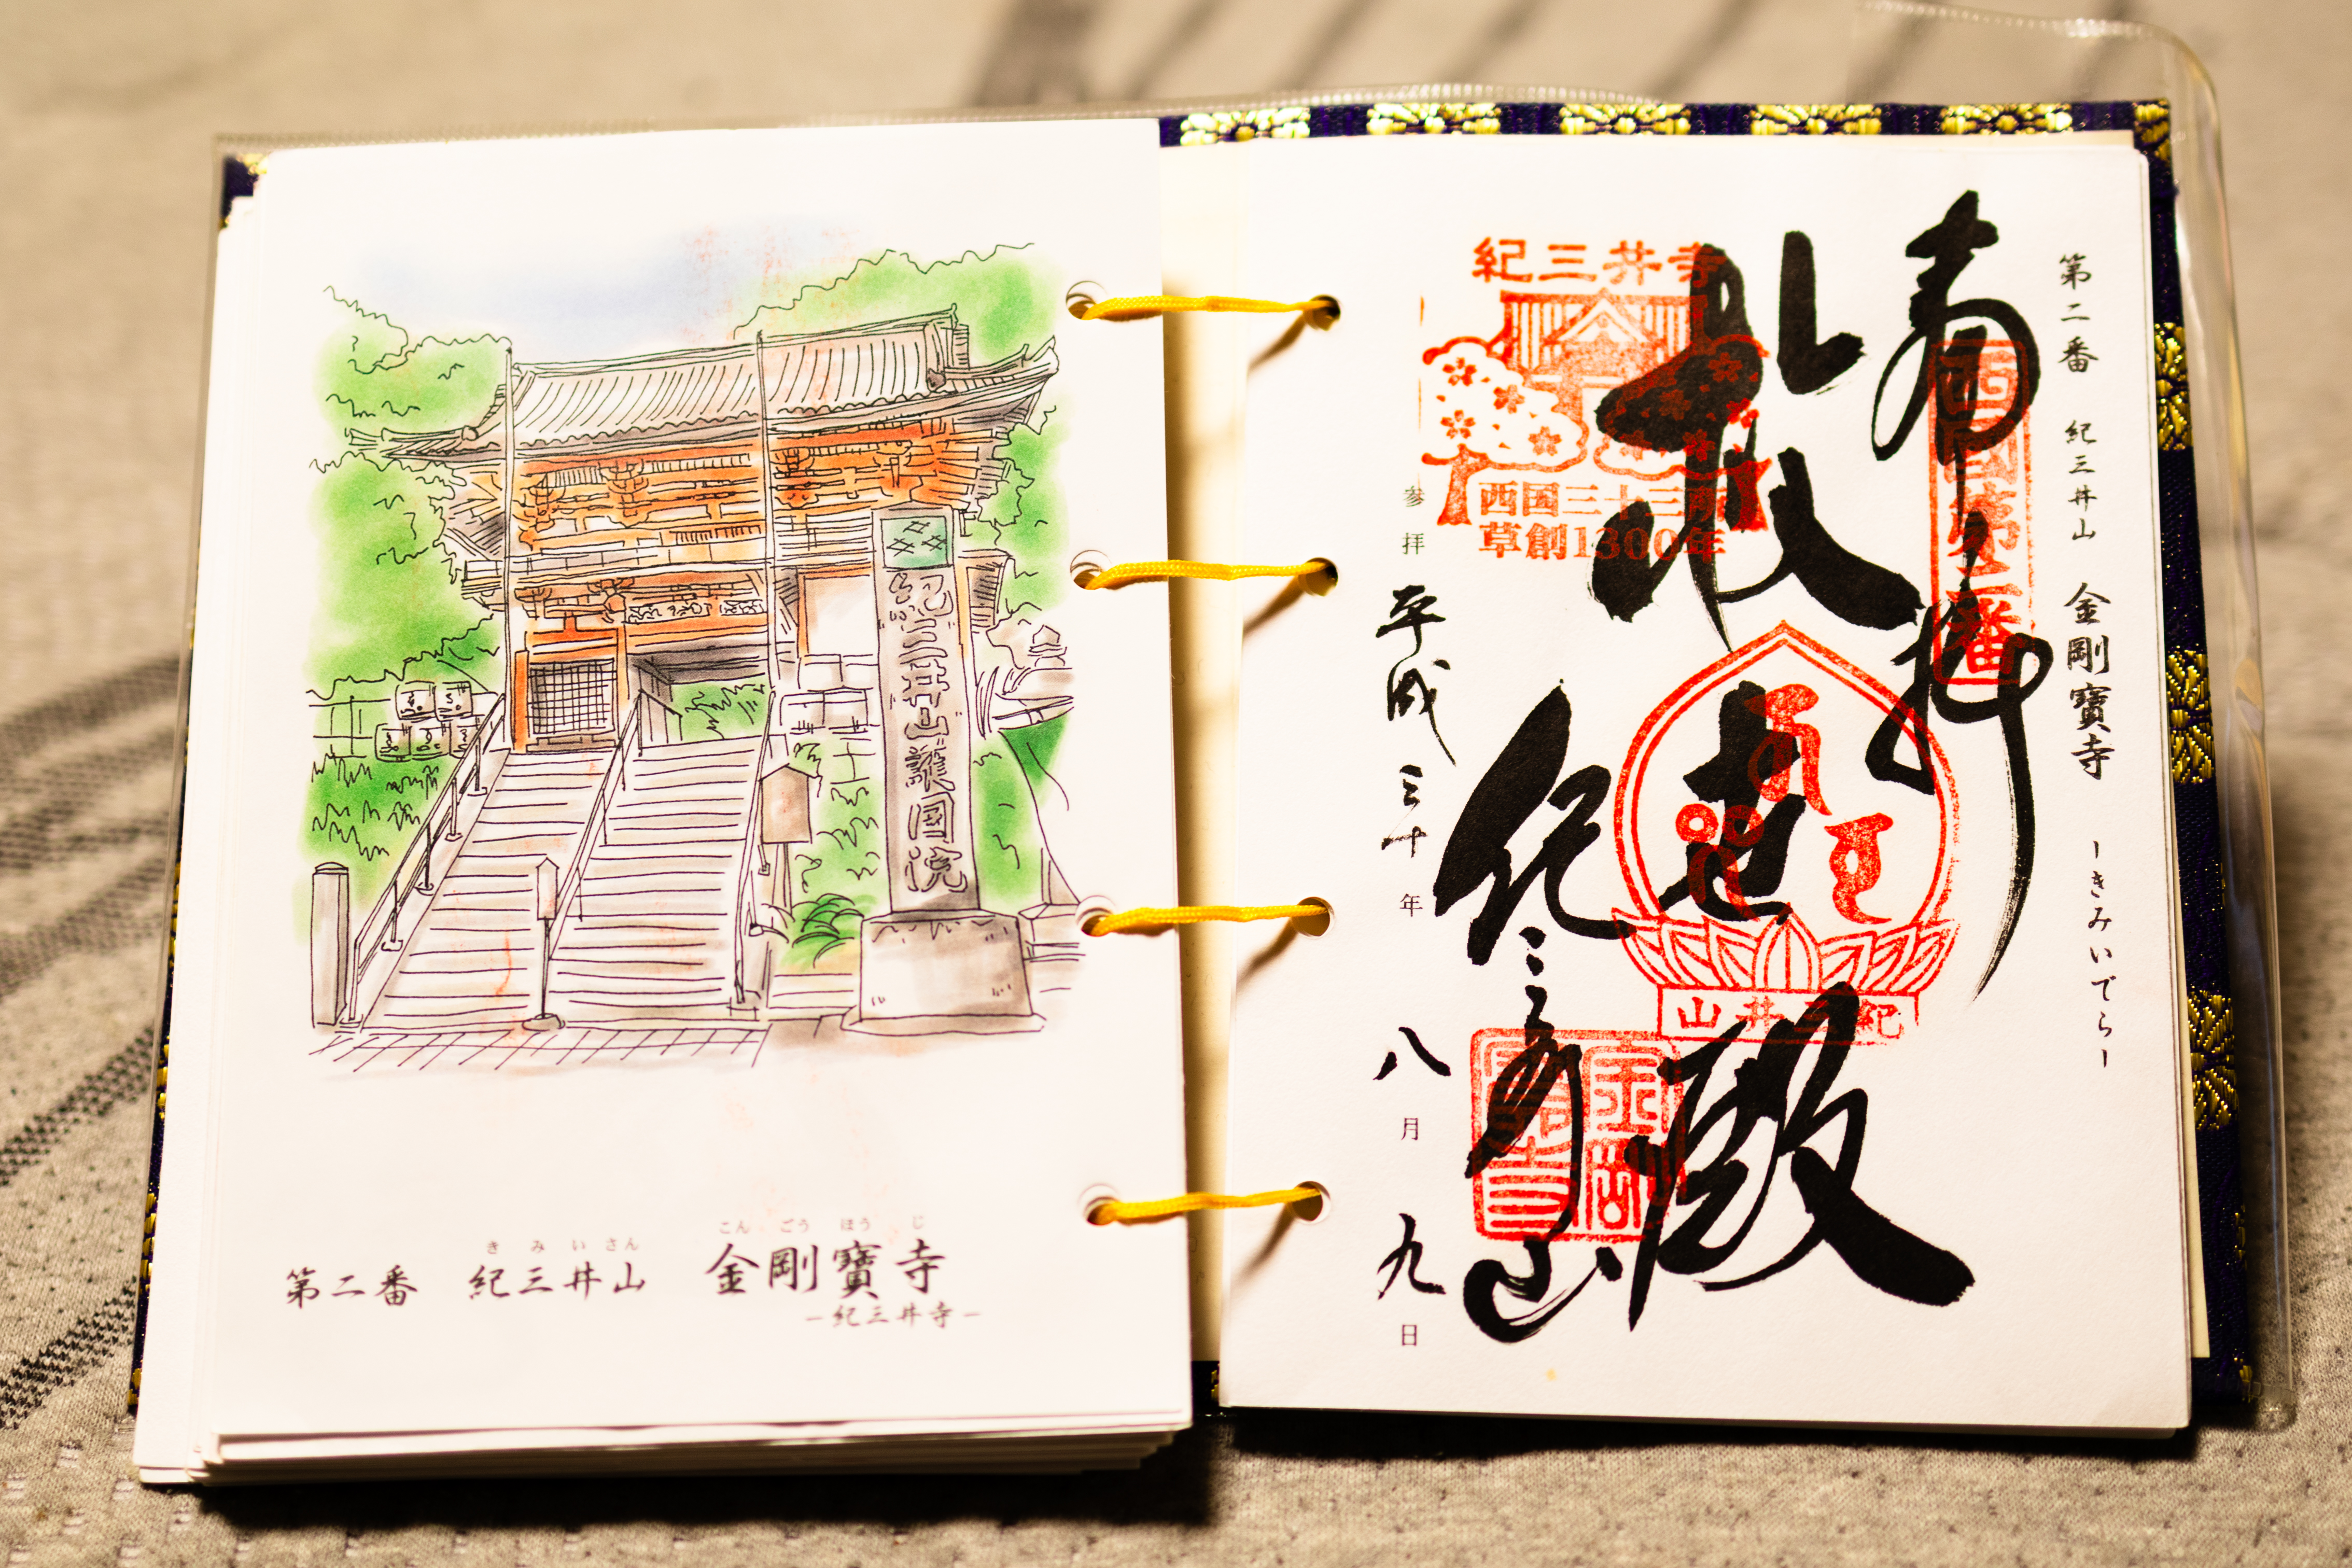 紀三井山護国院
き み い さん
こん ごう ほう じ
第二番 紀三井山 金剛寶寺
−紀三井寺−
第二番 紀三井山 金剛寶寺 −きみいでら−
奉拝
西國第二番
救世殿
紀三井山
紀三井山
金剛寶寺
紀三井寺
西国三十三所
草創1300年
参拝 平成三十年 八月 九日